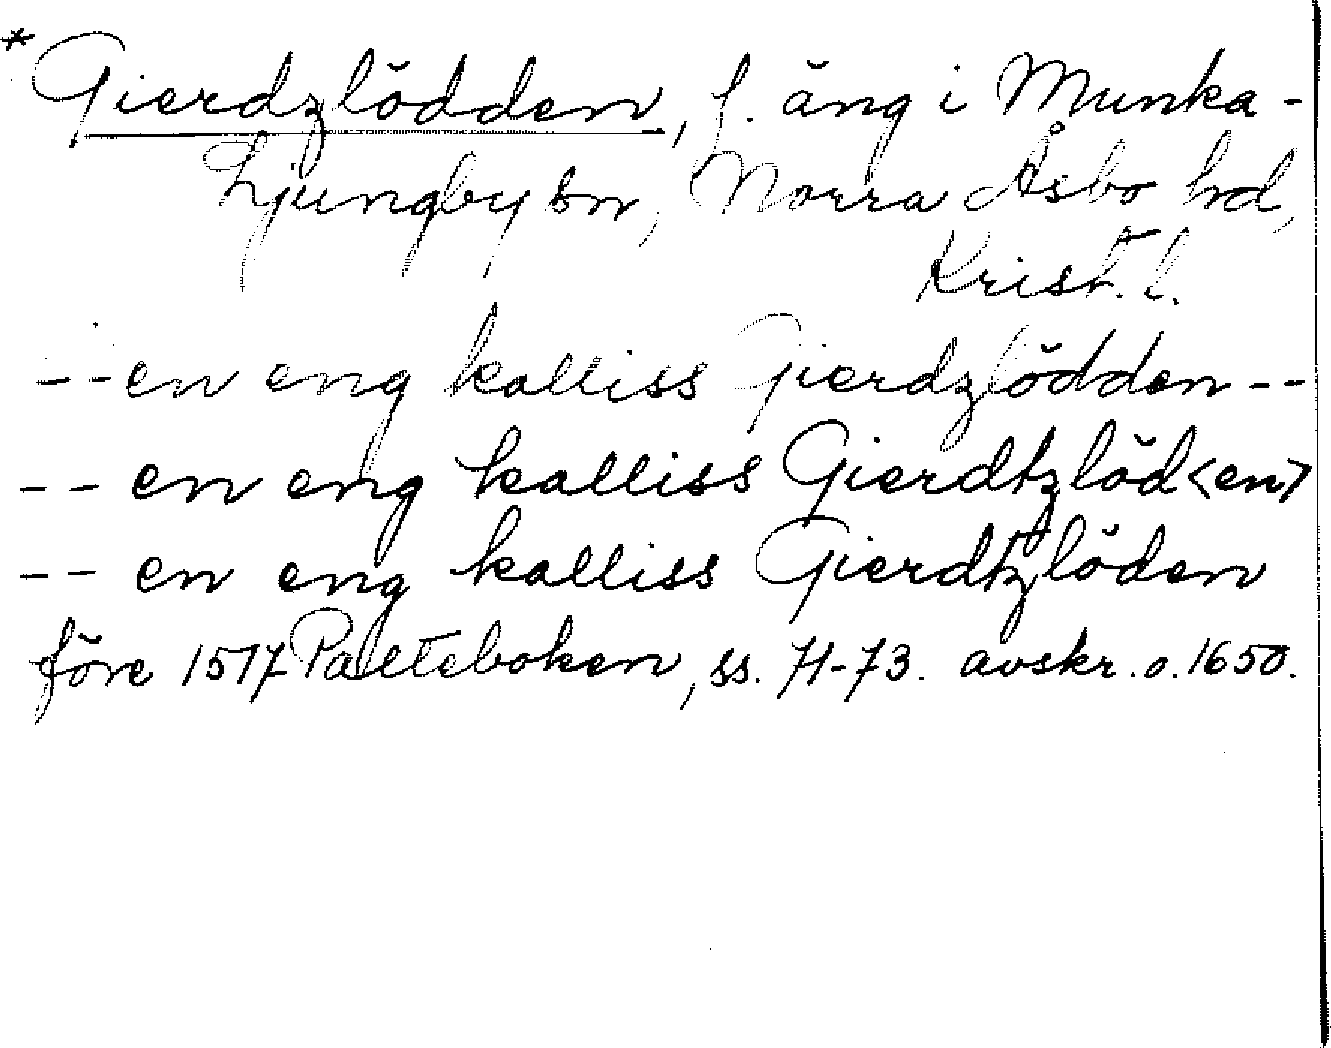 * Gierdzlödden, f. äng i Munka-
Ljungby sn, Norra Åsbo hd,
Krist. l.
-- en eng kalliss Gierdzlödden --
-- en eng kalliss Gierdtzlöd<en>
-- en eng kalliss Gierdtzlöden
före 1517 Palteboken, ss. 71-73. avskr. o. 1650.